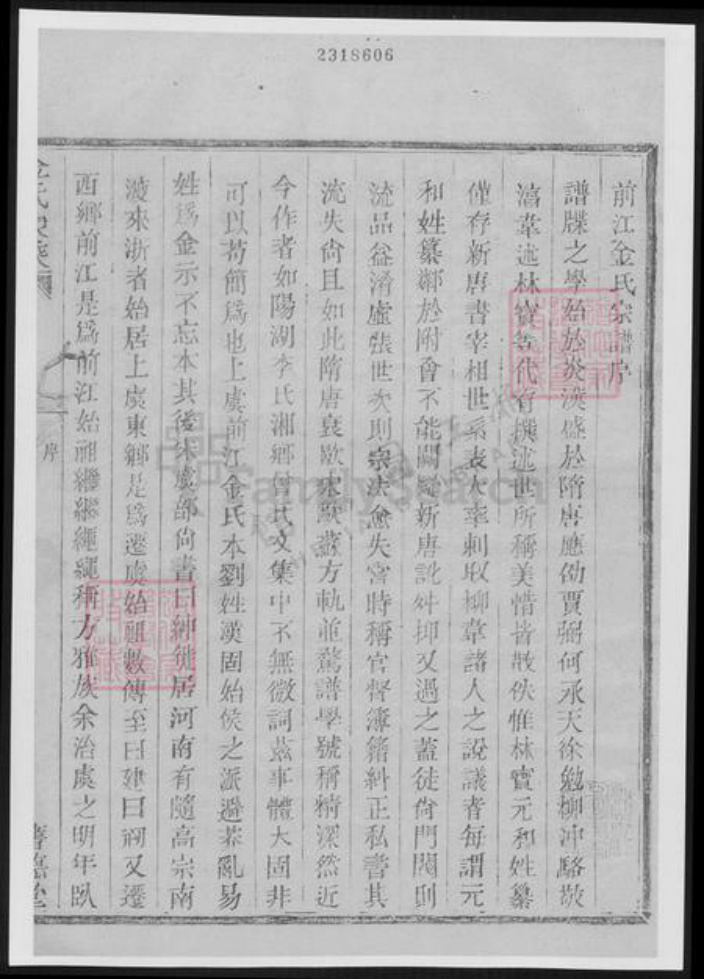 2318606
前江金氏宗譜序
譜牒之學始於炎漢盛於隋唐應劭賈弼何承天徐勉柳沖駱敬
瀆韋述林寶等代有撰述世所稱美惜皆散佚惟林寶元和姓纂
僅存新唐書宰相世系表大率刺取柳韋諸人之說議者每謂元
和姓纂鄰於附會不能闕疑新唐訛舛抑又過之蓋徒尚門閥則
流品益淆虛張世次則宗法愈失當時稱官督簿籍糾正私書其
流失尚且如此隋唐衰歇宋歐蘇方軌並騖譜學號稱精深然近
今作者如陽湖李氏湘鄉曾氏文集中不無微詞茲事體大固非
可以苟簡為也上虞前江金氏本劉姓漢固始侯之派避莽亂易
姓為金示不忘本其後宋虞部尚書曰紳徙居河南有隨高宗南
渡來浙者始居上虞東鄉是為遷虞始祖數傳至曰建曰嗣又遷
西鄉前江是為前江始祖繼繼繩繩稱方雅族余治虞之明年臥
金氏
序